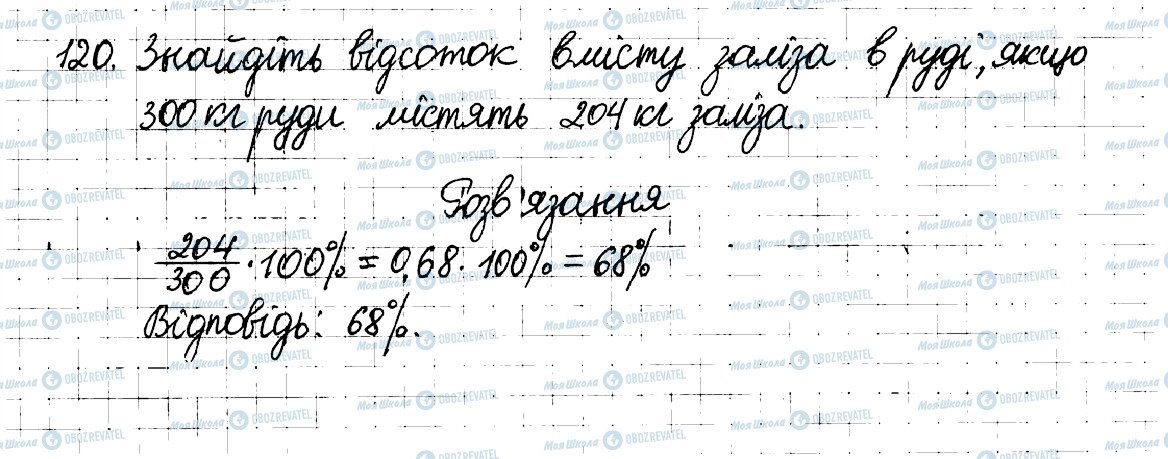 120. Знайдіть відсоток вмісту заліза в руді, якщо
300 кг руди містять 204 кг заліза.
Розв'язання
204/300 · 100% = 0,68 · 100% = 68%
Відповідь: 68%.